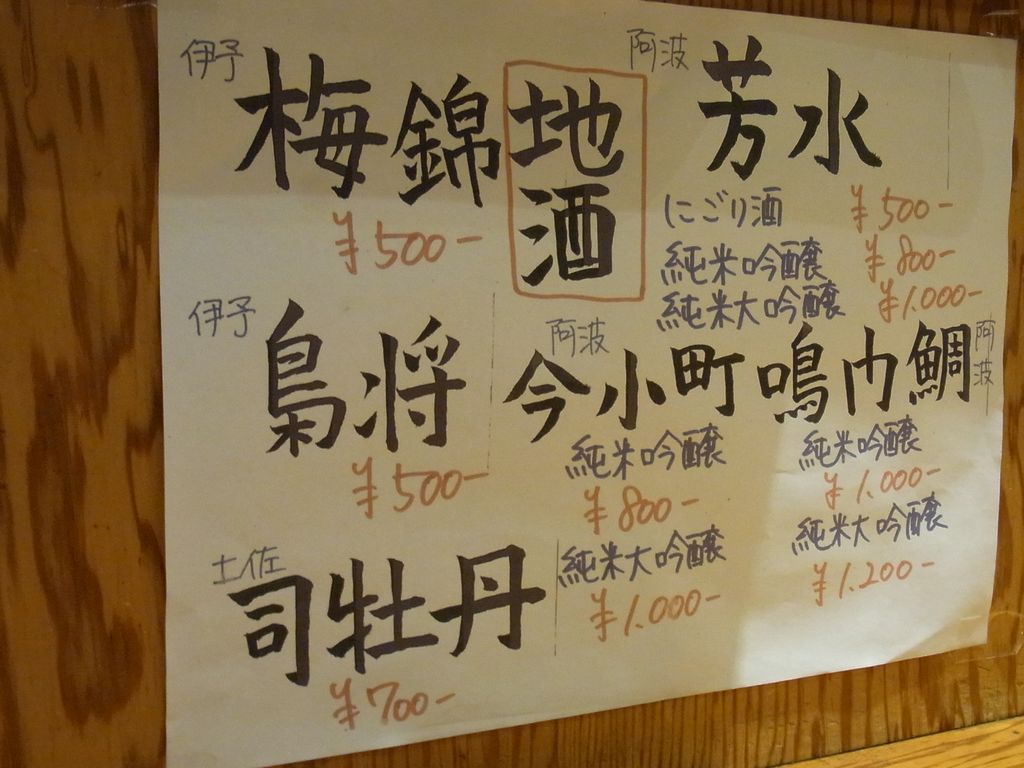 地酒
阿波
芳水
にごり酒 ¥500-
純米吟醸 ¥800-
純米大吟醸 ¥1.000-
伊予
梅錦
¥500-
伊予
梟将
¥500-
阿波
今小町
純米吟醸
¥800-
純米大吟醸
¥1.000-
阿波
鳴門鯛
純米吟醸
¥1.000-
純米大吟醸
¥1.200-
土佐
司牡丹
¥700-